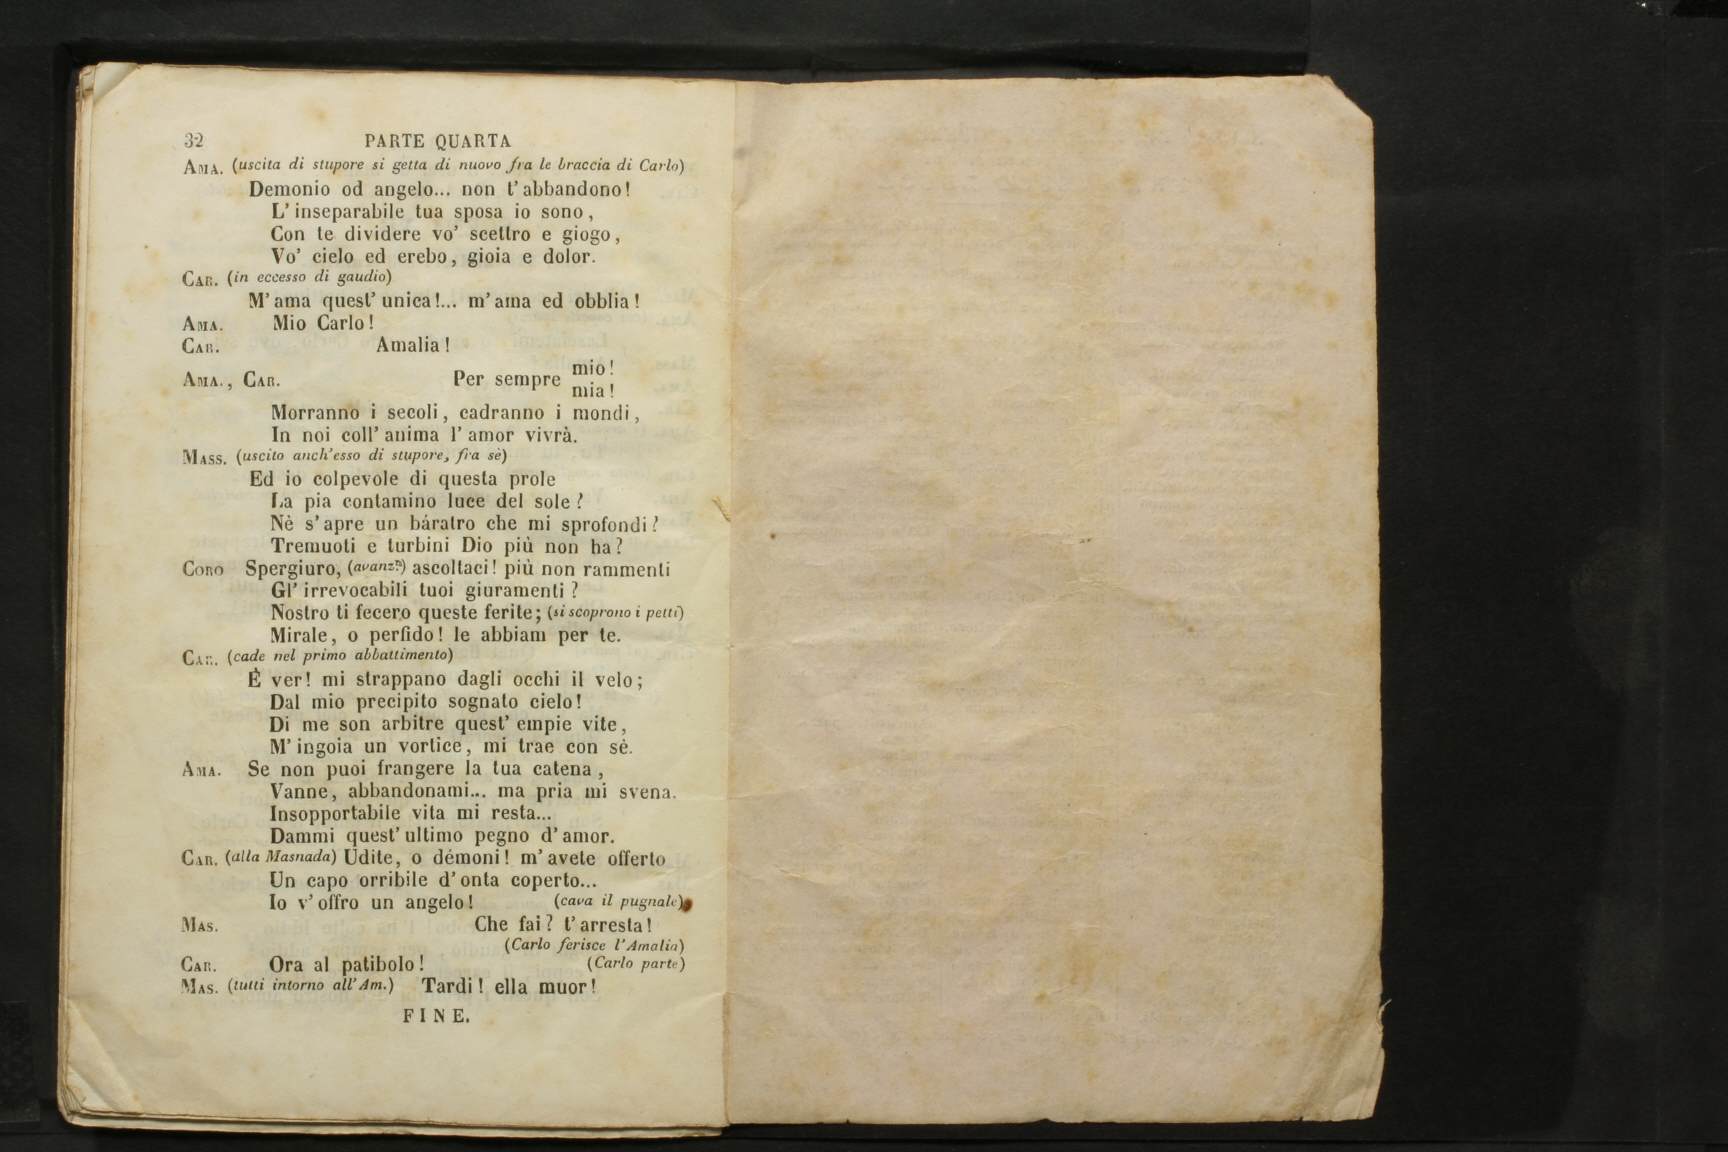 32 PARTE QUARTA
AMA. (uscita di stupore si getta di nuovo fra le braccia di Carlo)
Demonio od angelo... non t'abbandono!
L'inseparabile tua sposa io sono,
Con te dividere vo' scettro e giogo,
Vo' cielo ed erebo, gioia e dolor.
CAR. (in eccesso di gaudio)
M'ama quest'unica!... m'ama ed obblia!
AMA. Mio Carlo!
CAR. Amalia!
AMA., CAR. Per sempre mio!
mia!
Morranno i secoli, cadranno i mondi,
In noi coll'anima l'amor vivrà.
MASS. (uscito anch'esso di stupore, fra sè)
Ed io colpevole di questa prole
La pia contamino luce del sole?
Nè s'apre un báratro che mi sprofondi?
Tremuoti e turbini Dio più non ha?
CORO Spergiuro, (avanz.ⁿ) ascoltaci! più non rammenti
Gl'irrevocabili tuoi giuramenti?
Nostro ti fecero queste ferite; (si scoprono i petti)
Mirale, o perfido! le abbiam per te.
CAR. (cade nel primo abbattimento)
È ver! mi strappano dagli occhi il velo;
Dal mio precipito sognato cielo!
Di me son arbitre quest'empie vite,
M'ingoia un vortice, mi trae con sè.
AMA. Se non puoi frangere la tua catena,
Vanne, abbandonami... ma pria mi svena.
Insopportabile vita mi resta...
Dammi quest'ultimo pegno d'amor.
CAR. (alla Masnada) Udite, o démoni! m'avete offerto
Un capo orribile d'onta coperto...
Io v'offro un angelo! (cava il pugnale)
MAS. Che fai? t'arresta!
(Carlo ferisce l'Amalia)
CAR. Ora al patibolo! (Carlo parte)
MAS. (tutti intorno all'Am.) Tardi! ella muor!
FINE.